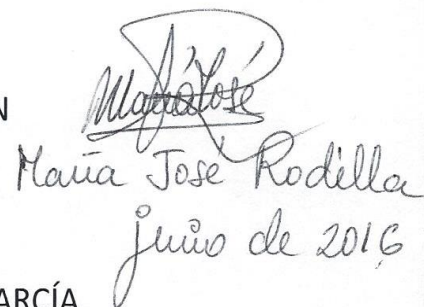 N
María José
María José Rodilla
junio de 2016
ARCÍA